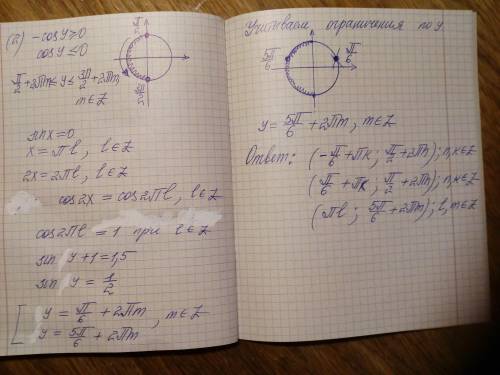 (а) -cosy ≥ 0
cosy ≤ 0
π/2 + 2πm ≤ y ≤ 3π/2 + 2πm,
m ∈ Z
π/2
3π/2
sinx = 0
x = πl, l ∈ Z
2x = 2πl, l ∈ Z
cos2x = cos2πl, l ∈ Z
cos2πl = 1 при l ∈ Z
sin y + 1 = 1,5
sin y = 1/2
[ y = π/6 + 2πm
y = 5π/6 + 2πm , m ∈ Z
Учитываем ограничения по y.
5π/6 π/6
y = 5π/6 + 2πm, m ∈ Z
Ответ: (-π/6 + πk; π/2 + 2πn); n,k ∈ Z
(π/6 + πk; π/2 + 2πn); n,k ∈ Z
(πl; 5π/6 + 2πm); l,m ∈ Z